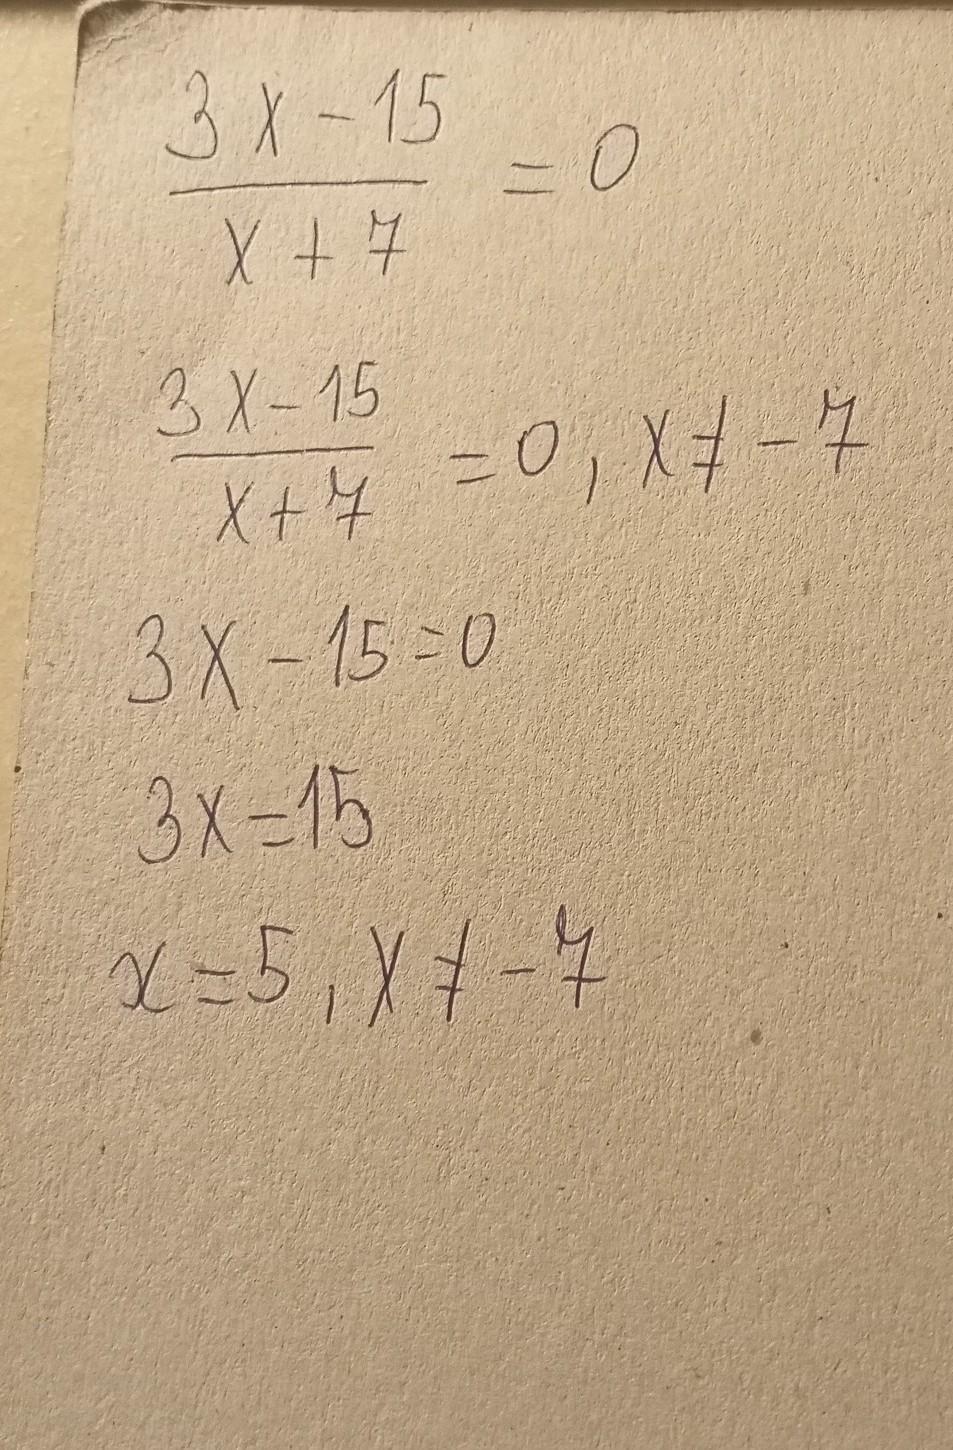 3x-15
/ x+7 = 0
3x-15
/ x+7 = 0, x≠-7
3x-15=0
3x=15
x=5, x≠-7